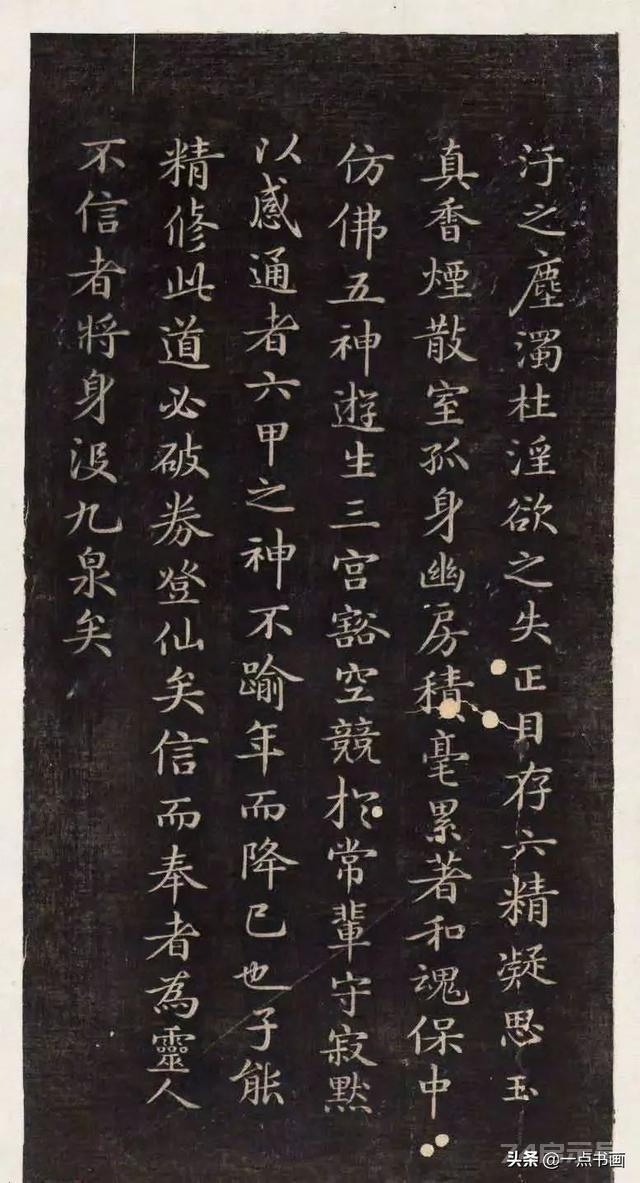 汙之塵濁杜淫欲之失正目存六精凝思玉
真香煙散室孤身幽房積毫累著和魂保中
仿佛五神遊生三宮豁空競於常輩守寂默
以感通者六甲之神不踰年而降已也子能
精修此道必破券登仙矣信而奉者為靈人
不信者將身沒九泉矣
头条 @一点书画